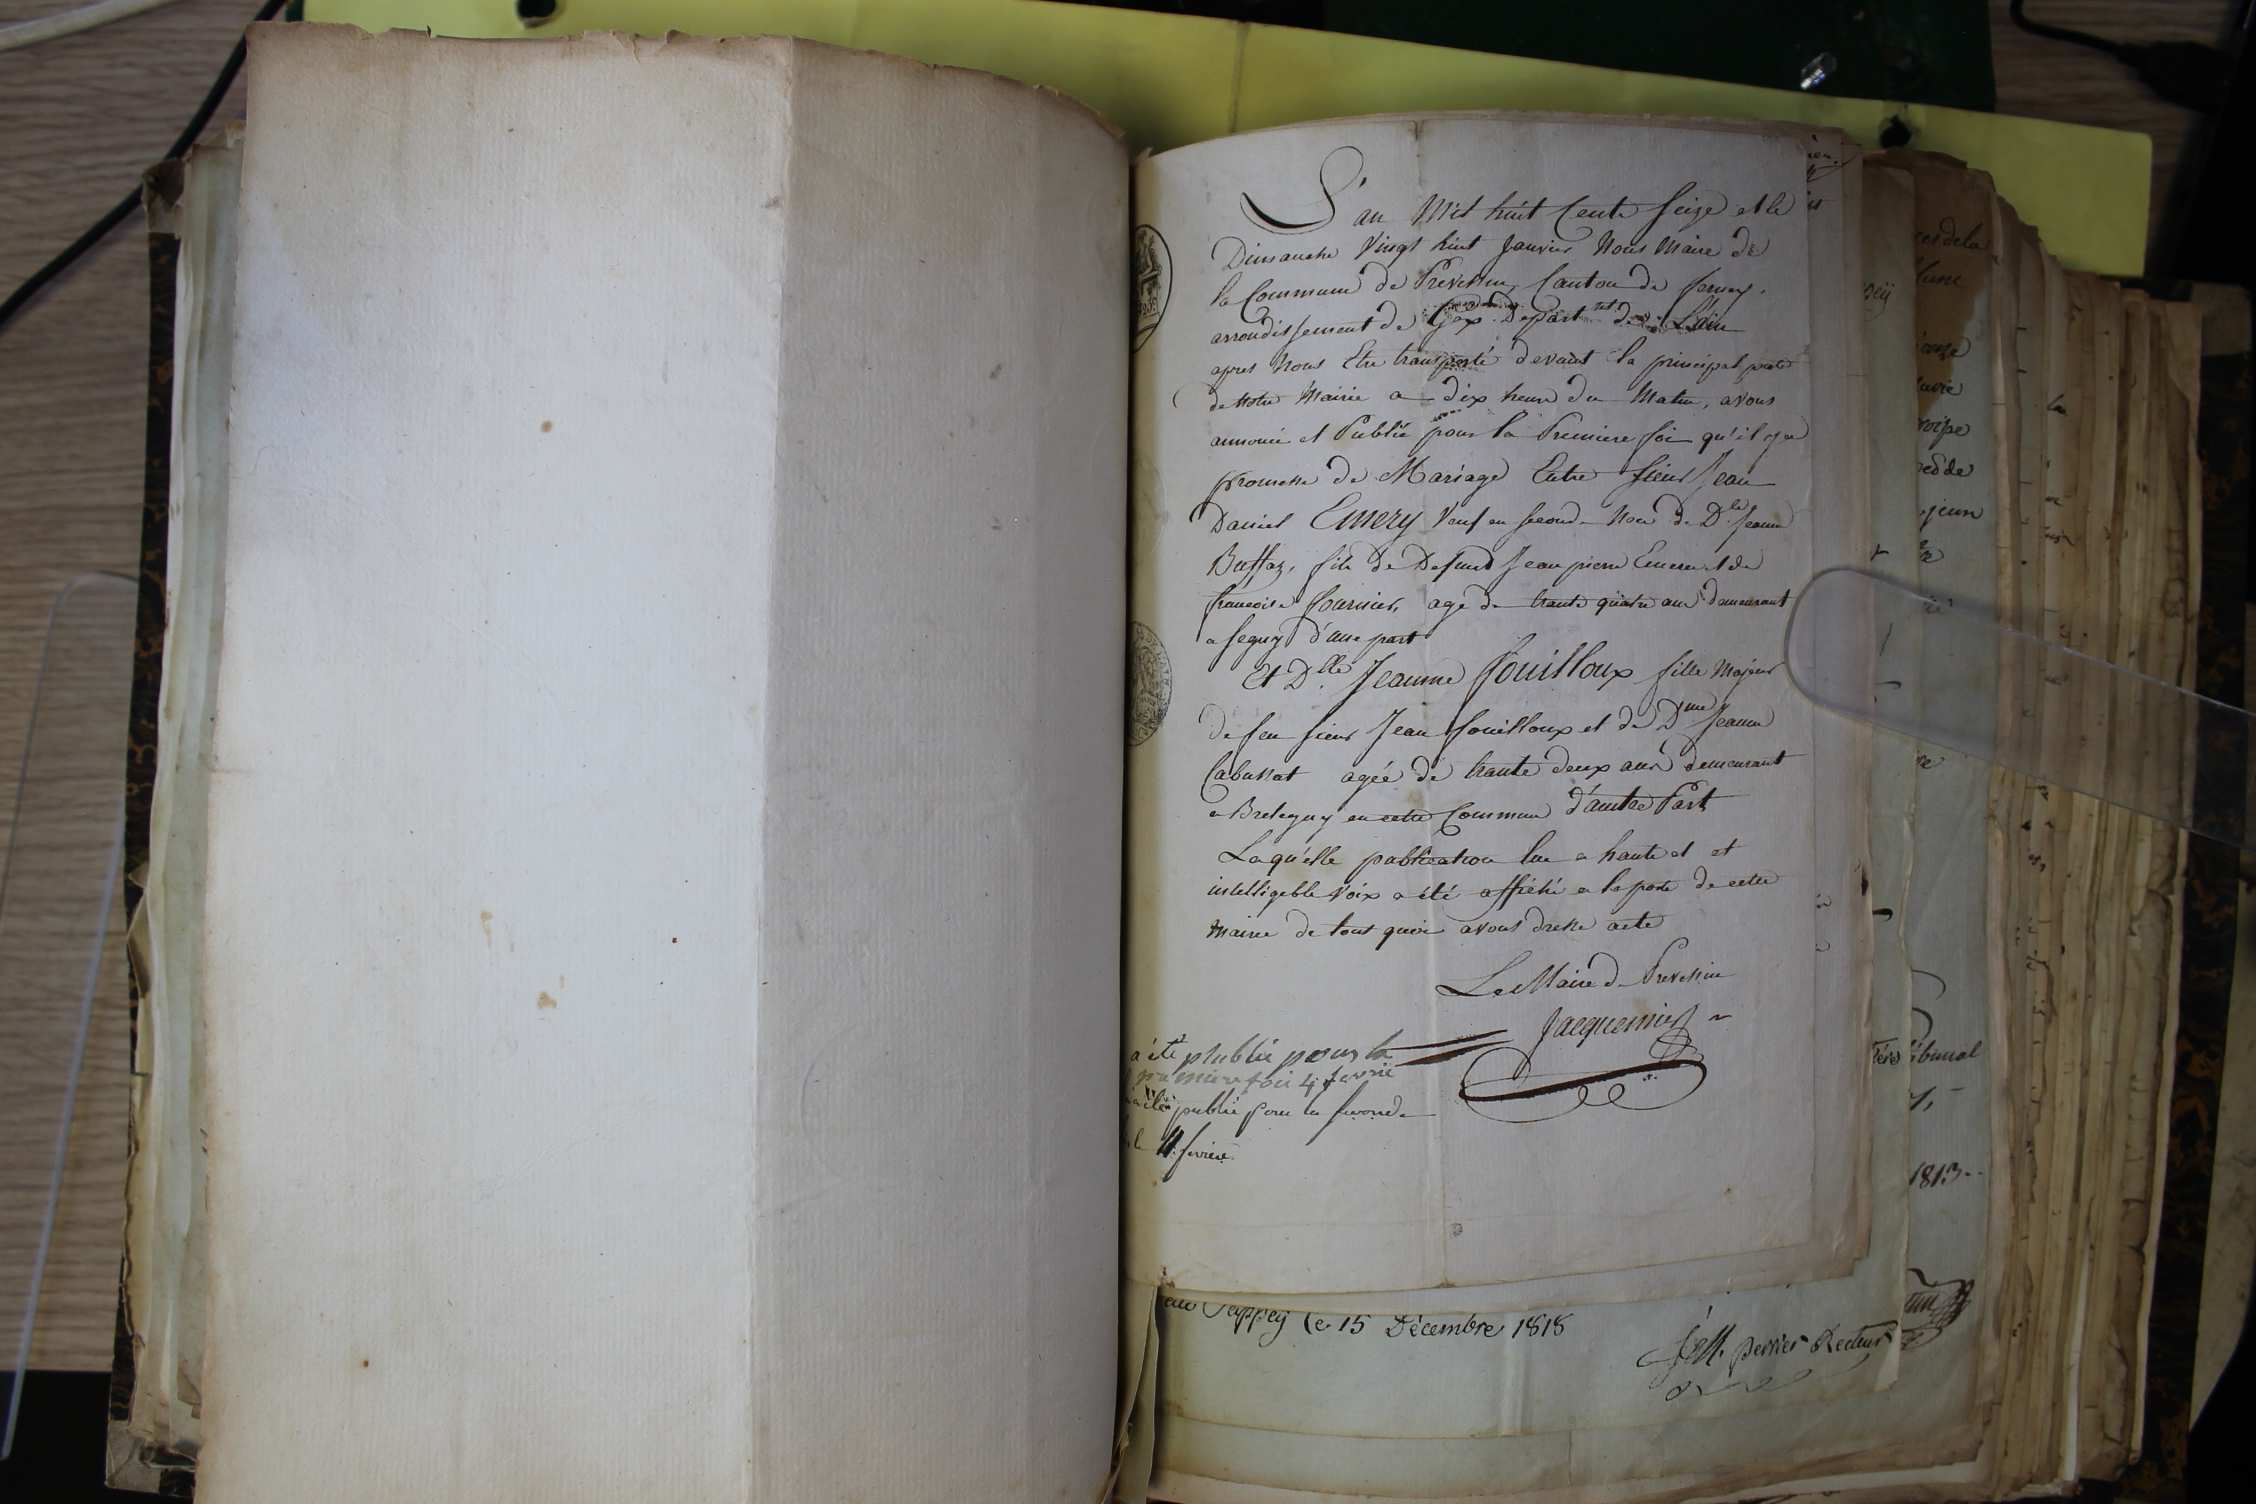 L'an Mil huit Cents Seize et le
Dimanche Vingt huit Janvier Nous Maire de
la Commune de Prevessin, Canton de ferney,
arrondissement de Gex Depart.nt de L'ain
apres Nous Etre transporté devant la principal porte
de Notre Mairie a dix heure du Matin, avons
annoncé et Publié pour la Premiere foi qu'il y a
promesse de Mariage Entre sieur Jean
Daniel Emery Veuf en second Noce de D.le Jeanne
Buffaz, fils de Defunt Jean pierre Emery et de
francoise fournier, age de trante quatre ans demeurant
a Segny d'une part
Et D.lle Jeanne fouilloux fille Majeur
de feu sieur Jean fouilloux et de D.me Jeanne
Cabussat agée de trante deux ans demeurant
a Bretegny en cette Commune d'autre Part
Laqu'elle publication lue a haute et et
intelligeble Voix a été affiché a la porte de cette
Mairie de tout quoi avons dressé acte
Le Maire de Prevessin
Jacquemier
a été publié pour la
premiere foi 4 fevrié
a été publié pour la seconde
le 11 fevrier
au Sappey le 15 Décembre 1818
perrier Recteur
1813